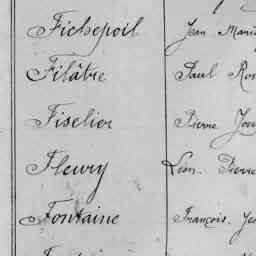 Fichepoil Jean Marie
Filâtre Paul
Fiselier Pierre
Fleury Léon. Pierre
Fontaine François.